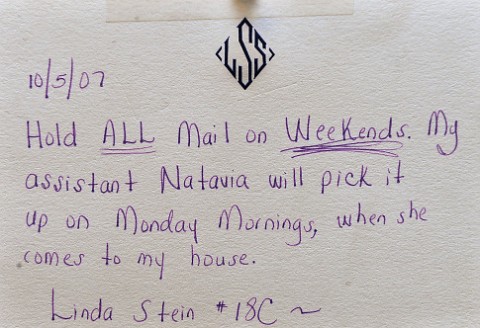 LSS
10/5/07
Hold ALL Mail on Weekends. My
assistant Natavia will pick it
up on Monday Mornings, when she
comes to my house.
Linda Stein #18C ~